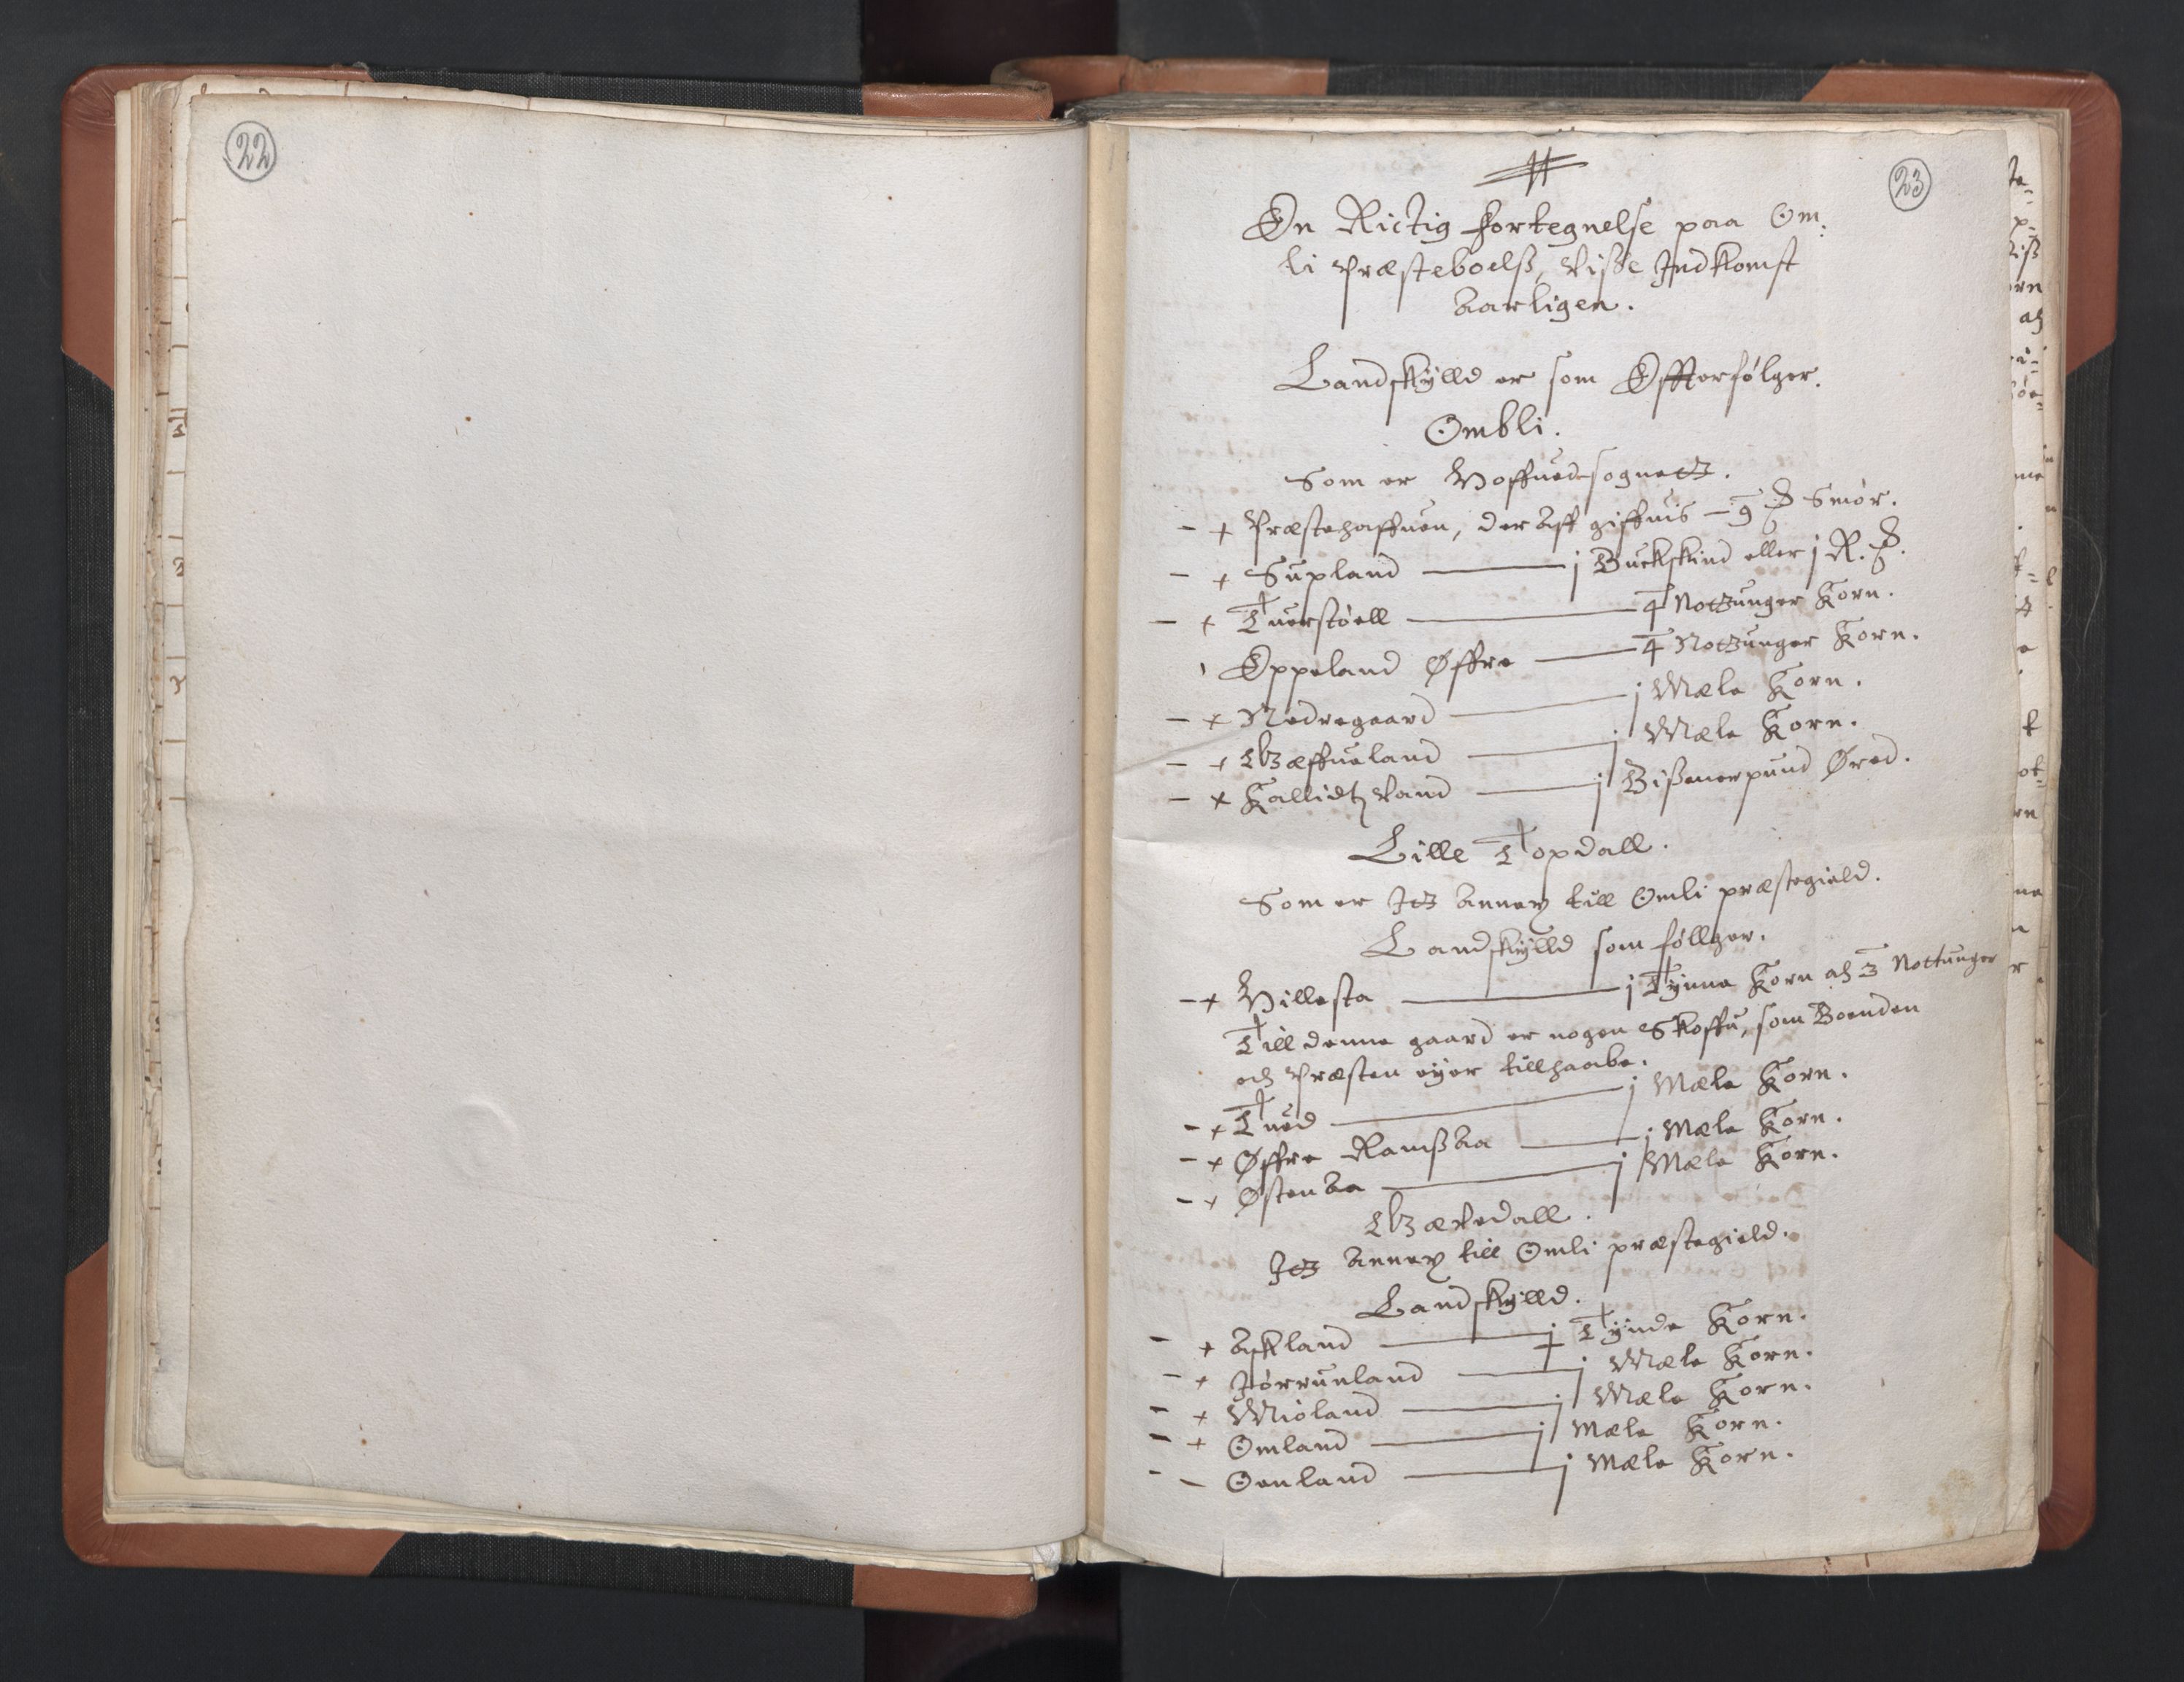 22
23
En Rictig fortegnelse paa Om:
li Præsteboelß, Visse Jndkomst
Aarligen.
Landskylld er som Effterfølger.
Ombli.
Som er Hoffuedsognetz.
- + Præstehaffuen, der Aff giffuis - 9 ₰ Smør.
- + Supland — j Buckskind eller j R. ₰.
- + Tuerstøell — 4 Notzunger Korn.
Eppeland Øffre — 4 Notzunger Korn.
- + Nedregaard — j Mæle Korn.
- + Hæffueland — j Mæle Korn.
- + Kallidtzland — j Bißmerpund Øred.
Lille Topdall.
Som er Jtz Annex till Omli præstegield.
Landskylld som föllger.
- + Hillesta — j Tynne Korn och 3 Nottunger
Till denne gaard er nogen Skoffu, som Bonden
och Præsten eyer tillhaabe.
- + Tued — j Mæle Korn.
- + Øffre Ramßaa — j Mæle Korn.
- + Østenaa — j Mæle Korn.
Jtz Annex till Omli præstegield.
Landskylld.
- + Askland — j Tynde Korn.
- + Jørrunland — j Mæle Korn.
- + Mioland — j Mæle Korn.
- + Omland — j Mæle Korn.
- - Oenland — j Mæle Korn.